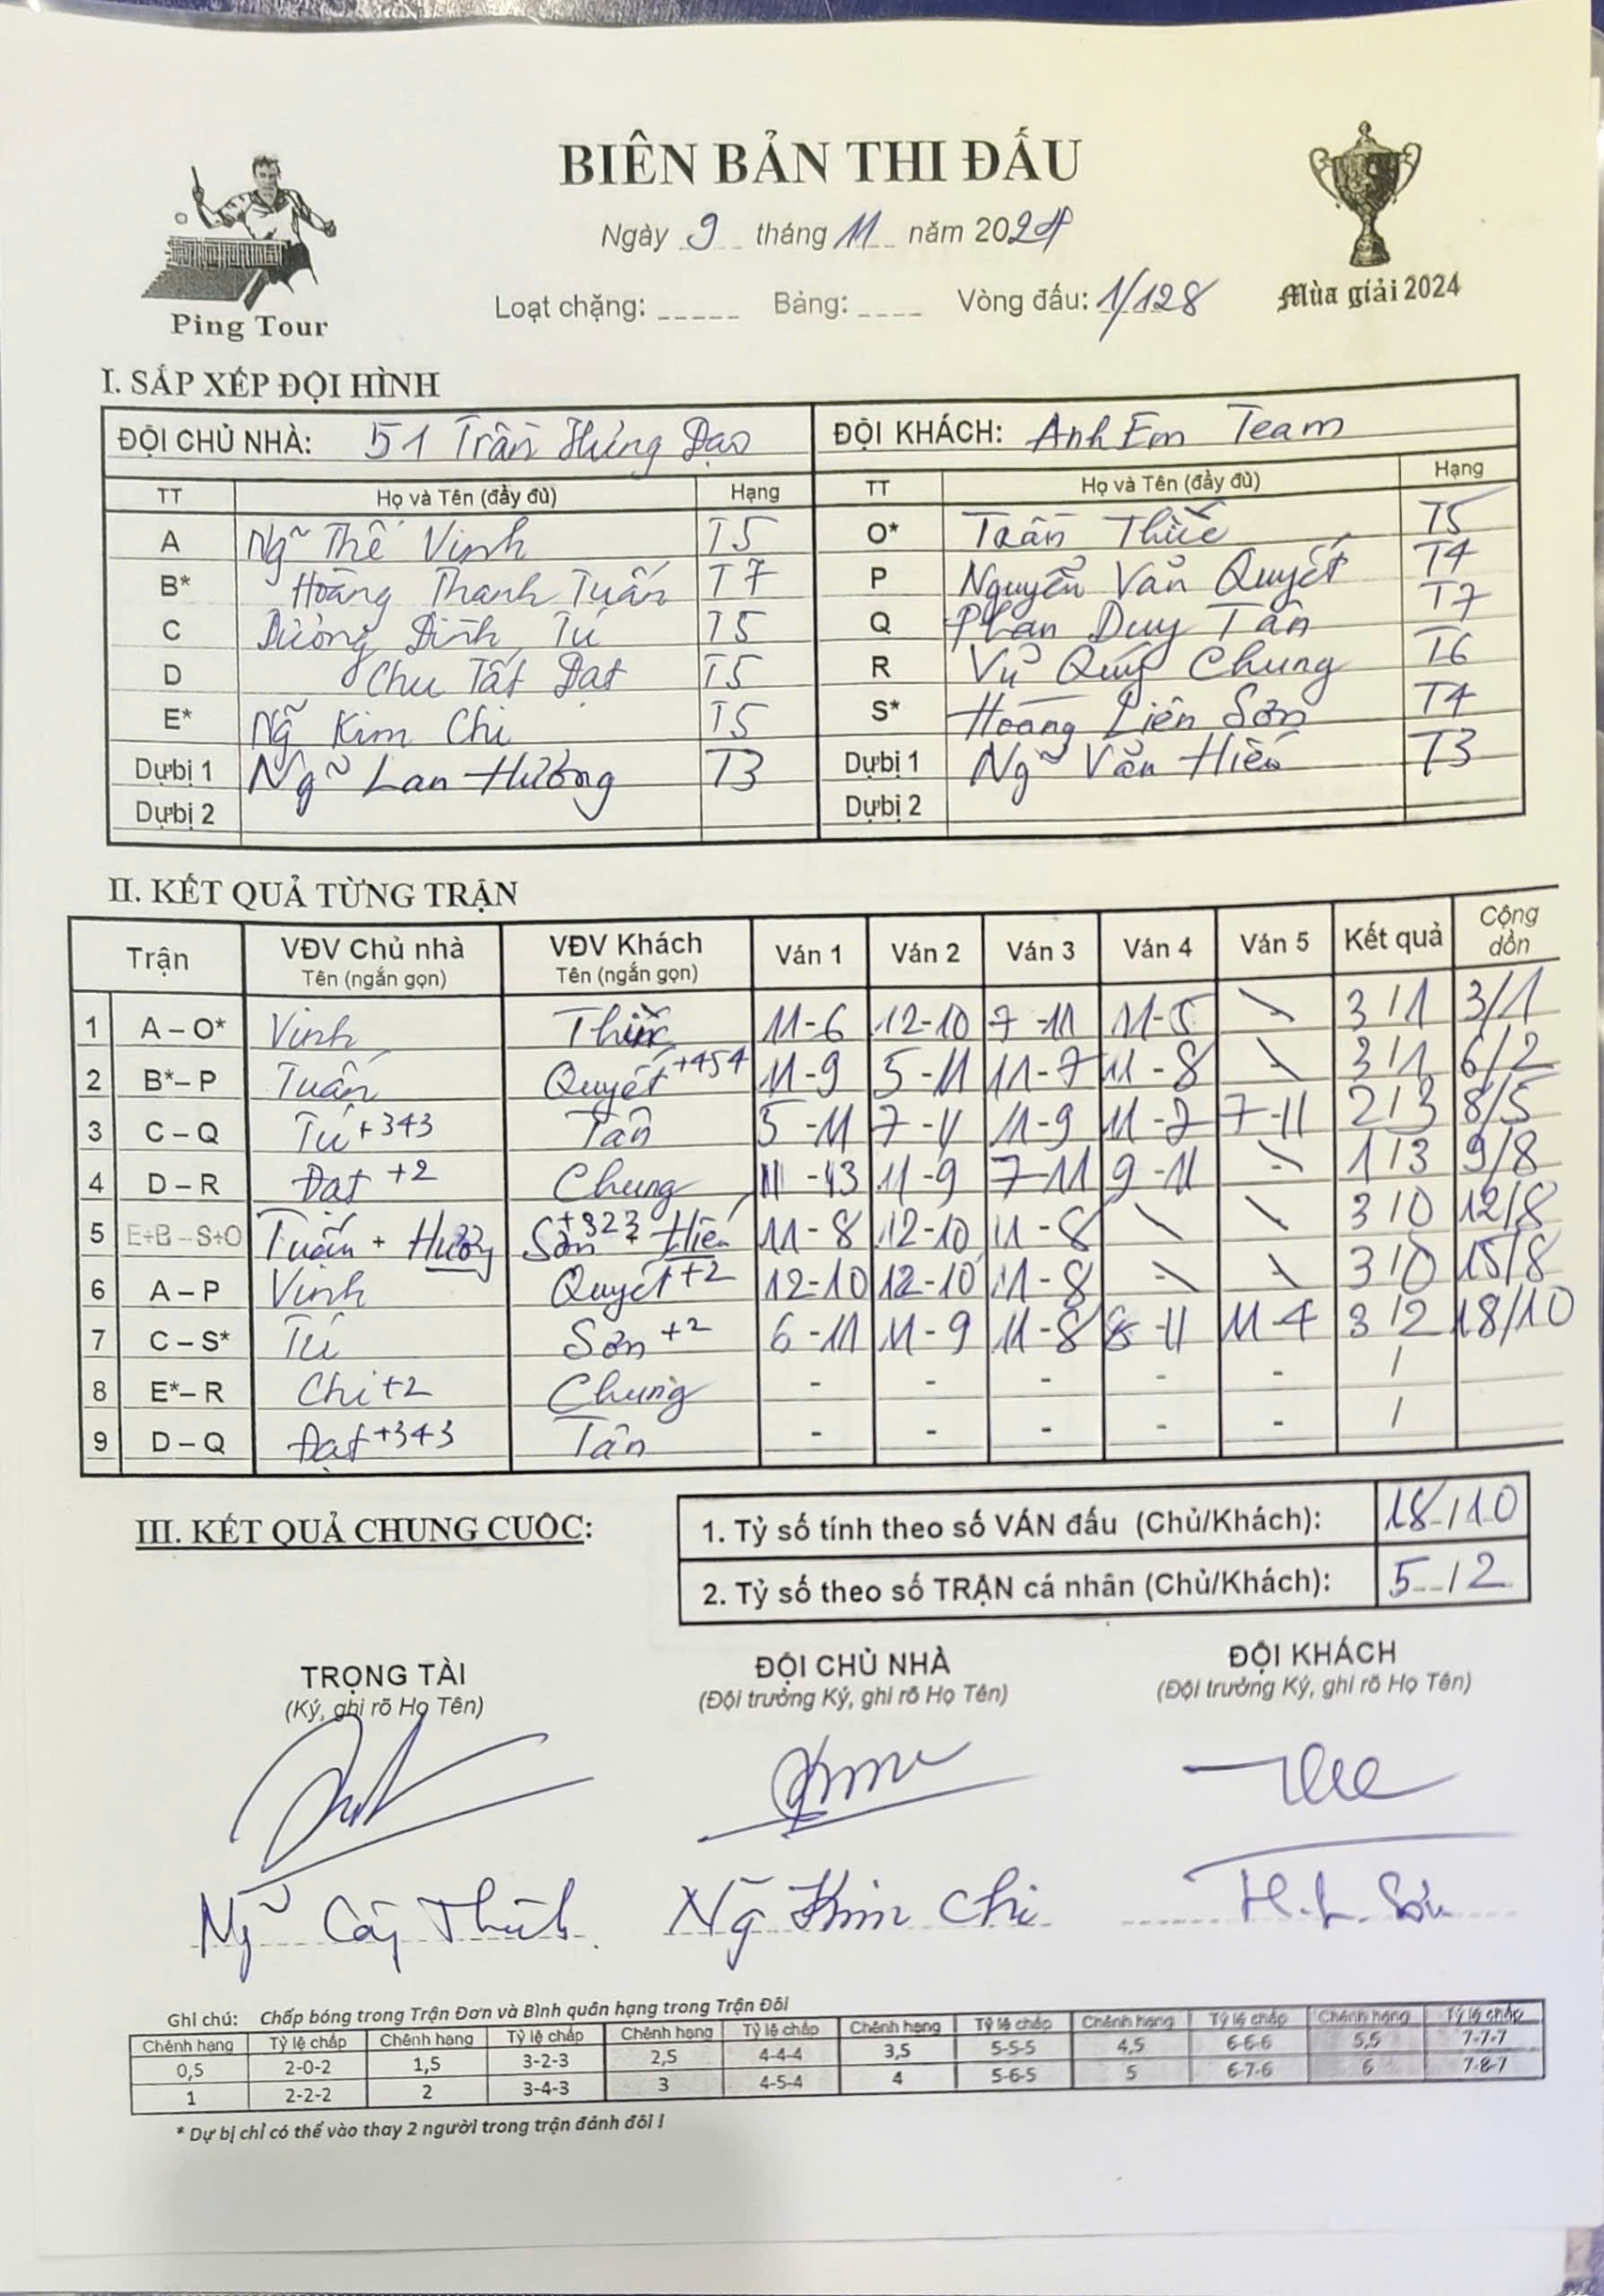 BIÊN BẢN THI ĐẤU
Ngày 9 tháng 11 năm 2024
Loạt chặng: _____ Bảng: ____ Vòng đấu: 1/128
Ping Tour
Mùa giải 2024
I. SẮP XẾP ĐỘI HÌNH
ĐỘI CHỦ NHÀ: 51 Trần Hưng Đạo ĐỘI KHÁCH: Anh Em Team
TT Họ và Tên (đầy đủ) Hạng TT Họ và Tên (đầy đủ) Hạng
A Ngễ Thế Vinh T5 O* Trần Thức T5
B* Hoàng Thanh Tuấn T7 P Nguyễn Văn Quyết T4
C Dương Đình Tú T5 Q Phan Duy Tân T7
D Chu Tất Đạt T5 R Vũ Quý Chung T6
E* Ng~ Kim Chi T5 S* Hoàng Liên Sơn T4
Dự bị 1 Ng~ Lan Hương T3 Dự bị 1 Ng~ Văn Hiến T3
Dự bị 2 Dự bị 2
II. KẾT QUẢ TỪNG TRẬN
Trận VĐV Chủ nhà Tên (ngắn gọn) VĐV Khách Tên (ngắn gọn) Ván 1 Ván 2 Ván 3 Ván 4 Ván 5 Kết quả Cộng dồn
1 A – O* Vinh Thức 11-6 12-10 7-11 11-5 \ 3/1 3/1
2 B*– P Tuấn Quyết +454 11-9 5-11 11-7 11-8 \ 3/1 6/2
3 C – Q Tú +343 Tân 5-11 7-11 11-9 11-7 7-11 2/3 8/5
4 D – R Đạt +2 Chung 11-13 11-9 7-11 9-11 \ 1/3 9/8
5 E+B – S+O Tuấn + Hương Sơn + Hiến +323 11-8 12-10 11-8 \ \ 3/0 12/8
6 A – P Vinh Quyết +2 12-10 12-10 11-8 \ \ 3/0 15/8
7 C – S* Tú Sơn +2 6-11 11-9 11-8 8-11 11-4 3/2 18/10
8 E*– R Chi +2 Chung - - - - - /
9 D – Q Đạt +343 Tân - - - - - /
III. KẾT QUẢ CHUNG CUỘC:
1. Tỷ số tính theo số VÁN đấu (Chủ/Khách): 18/10
2. Tỷ số theo số TRẬN cá nhân (Chủ/Khách): 5/2
TRỌNG TÀI ĐỘI CHỦ NHÀ ĐỘI KHÁCH
(Ký, ghi rõ Họ Tên) (Đội trưởng Ký, ghi rõ Họ Tên) (Đội trưởng Ký, ghi rõ Họ Tên)
Ng~ Kim Chi H.L. Sơn
Ghi chú: Chấp bóng trong Trận Đơn và Bình quân hạng trong Trận Đôi
Chênh hạng Tỷ lệ chấp Chênh hạng Tỷ lệ chấp Chênh hạng Tỷ lệ chấp Chênh hạng Tỷ lệ chấp Chênh hạng Tỷ lệ chấp Chênh hạng Tỷ lệ chấp
0,5 2-0-2 1,5 3-2-3 2,5 4-4-4 3,5 5-5-5 4,5 6-6-6 5,5 7-7-7
1 2-2-2 2 3-4-3 3 4-5-4 4 5-6-5 5 6-7-6 6 7-8-7
* Dự bị chỉ có thể vào thay 2 người trong trận đánh đôi !